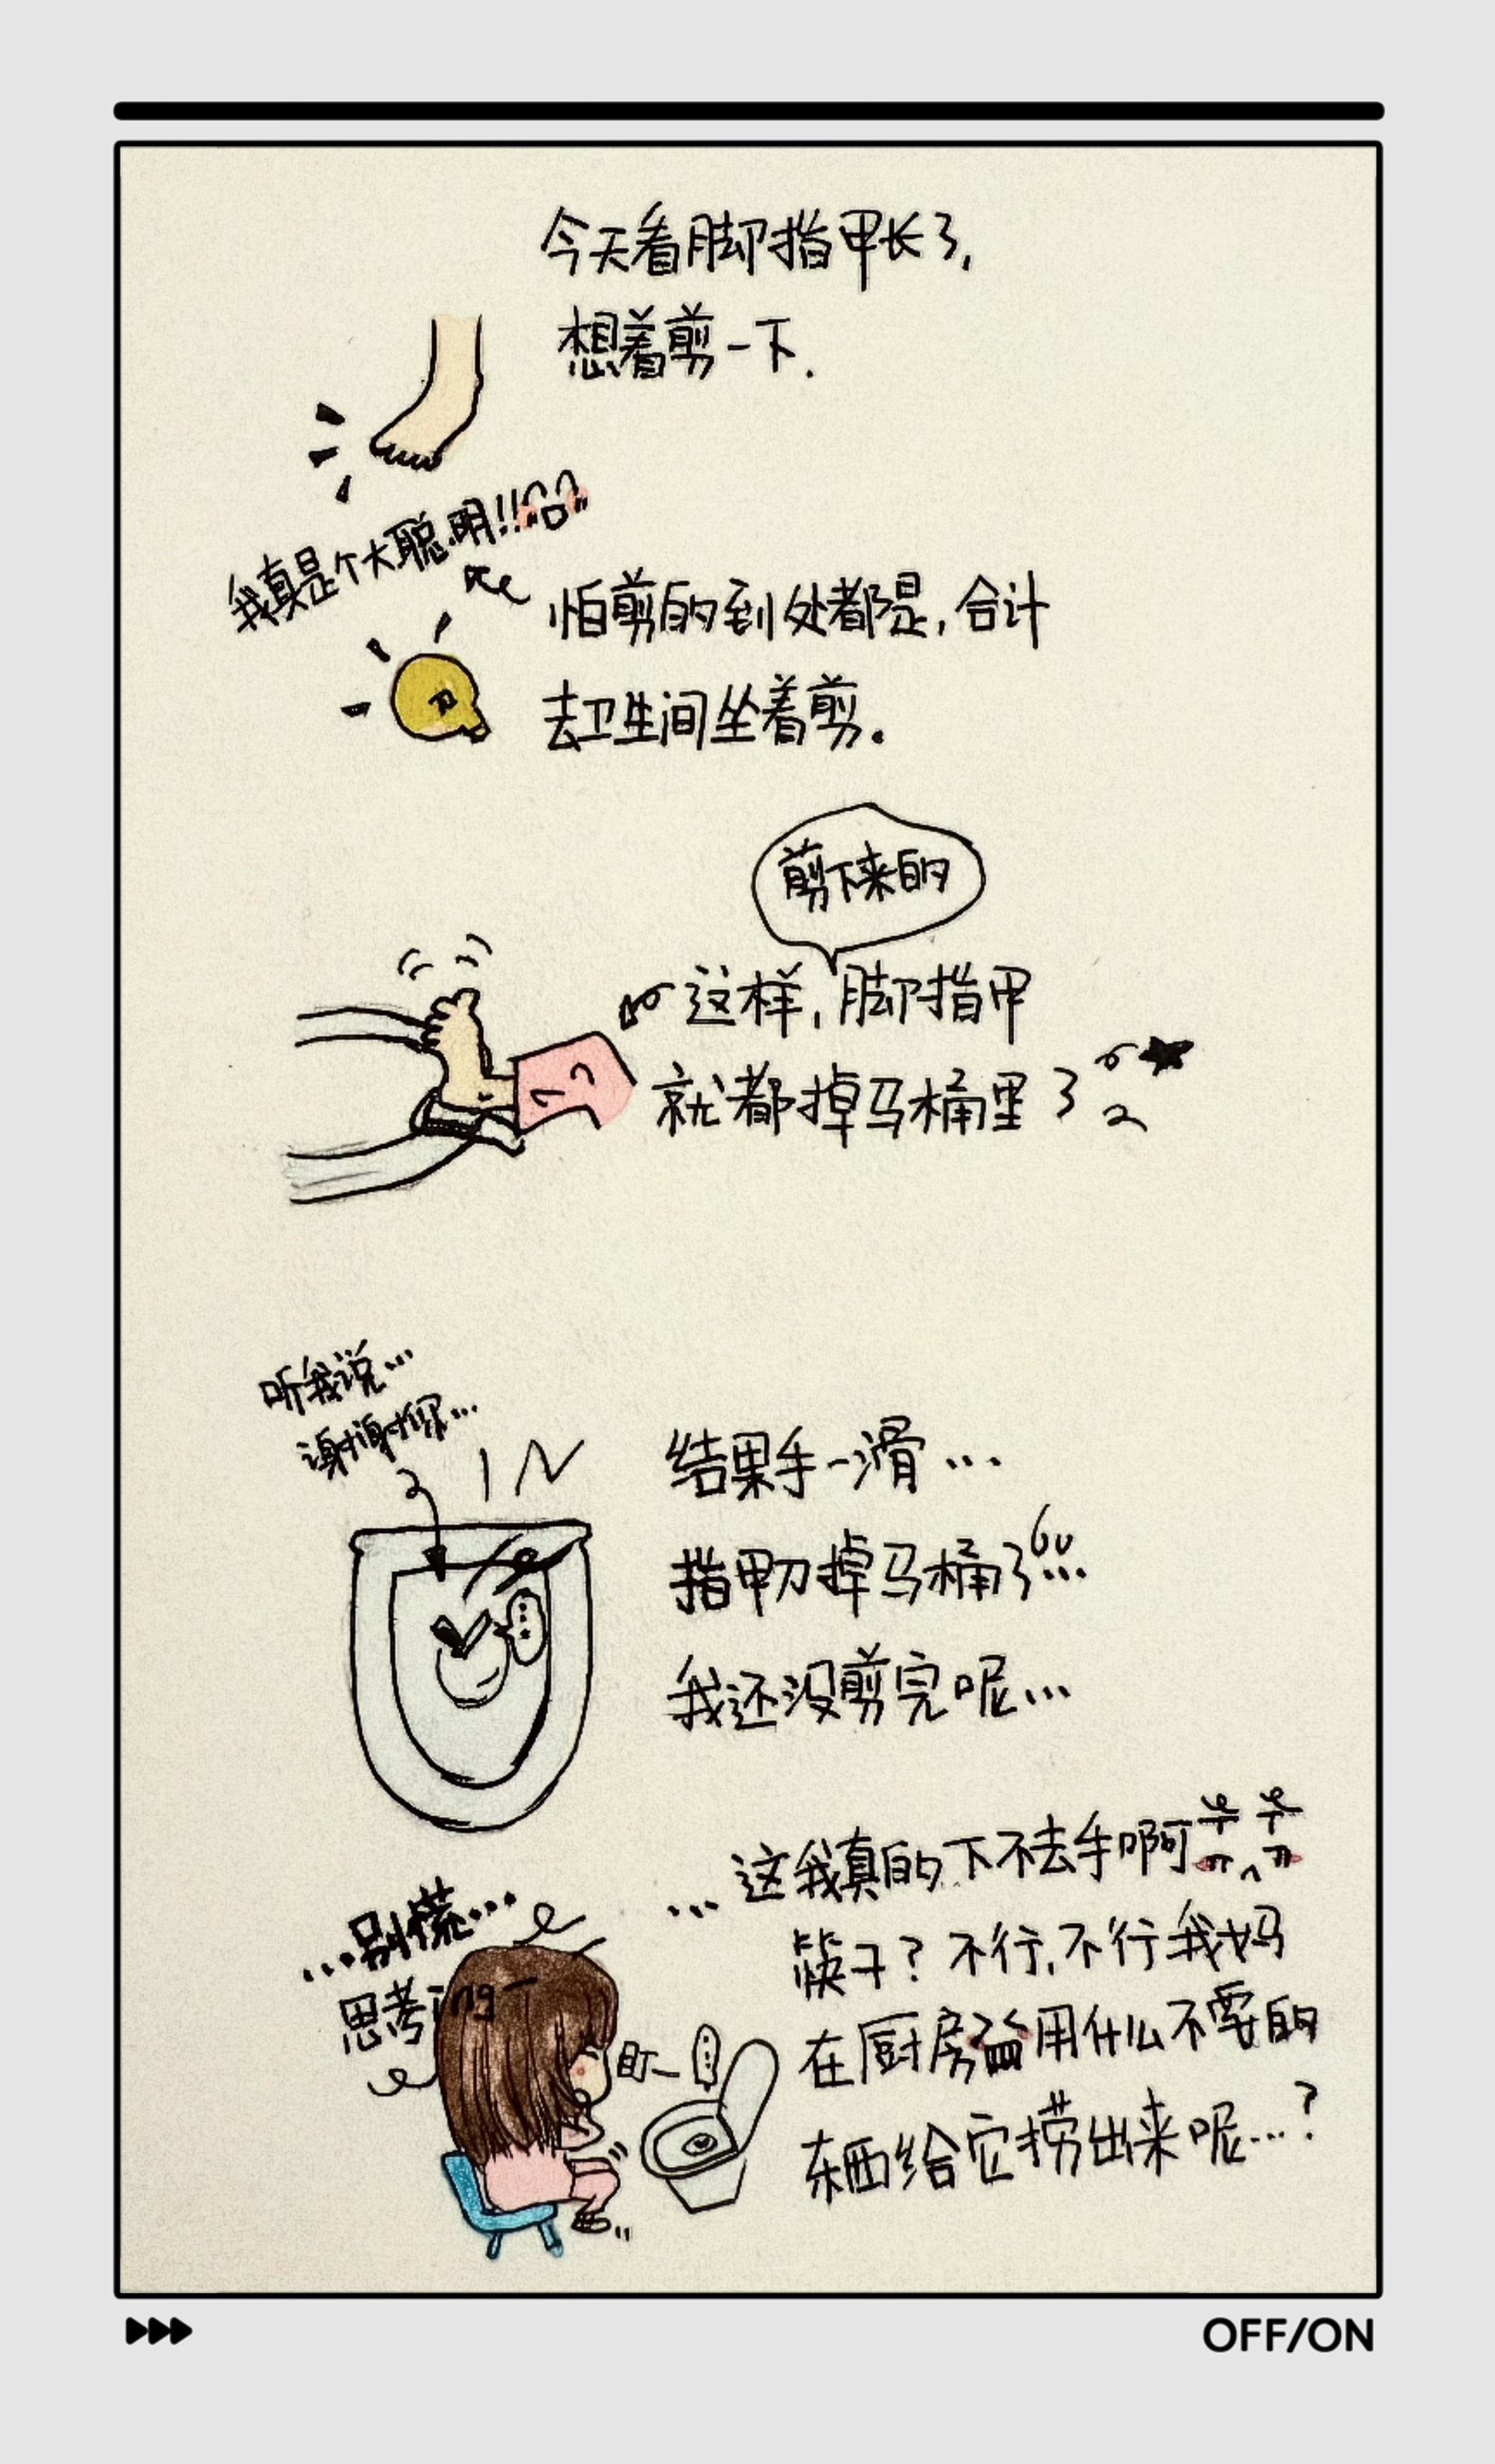 今天看脚指甲长了,
想着剪一下.
我真是个大聪明!!
怕剪的到处都是,合计
去卫生间坐着剪.
剪下来的
这样,脚指甲
就都掉马桶里了
听我说...
谢谢你...
结果手一滑...
指甲刀掉马桶了...
我还没剪完呢...
...这我真的下不去手啊
...别慌...
思考ing-
筷子?不行,不行我妈
在厨房
用什么不要的
盯—
东西给它捞出来呢...?
OFF/ON